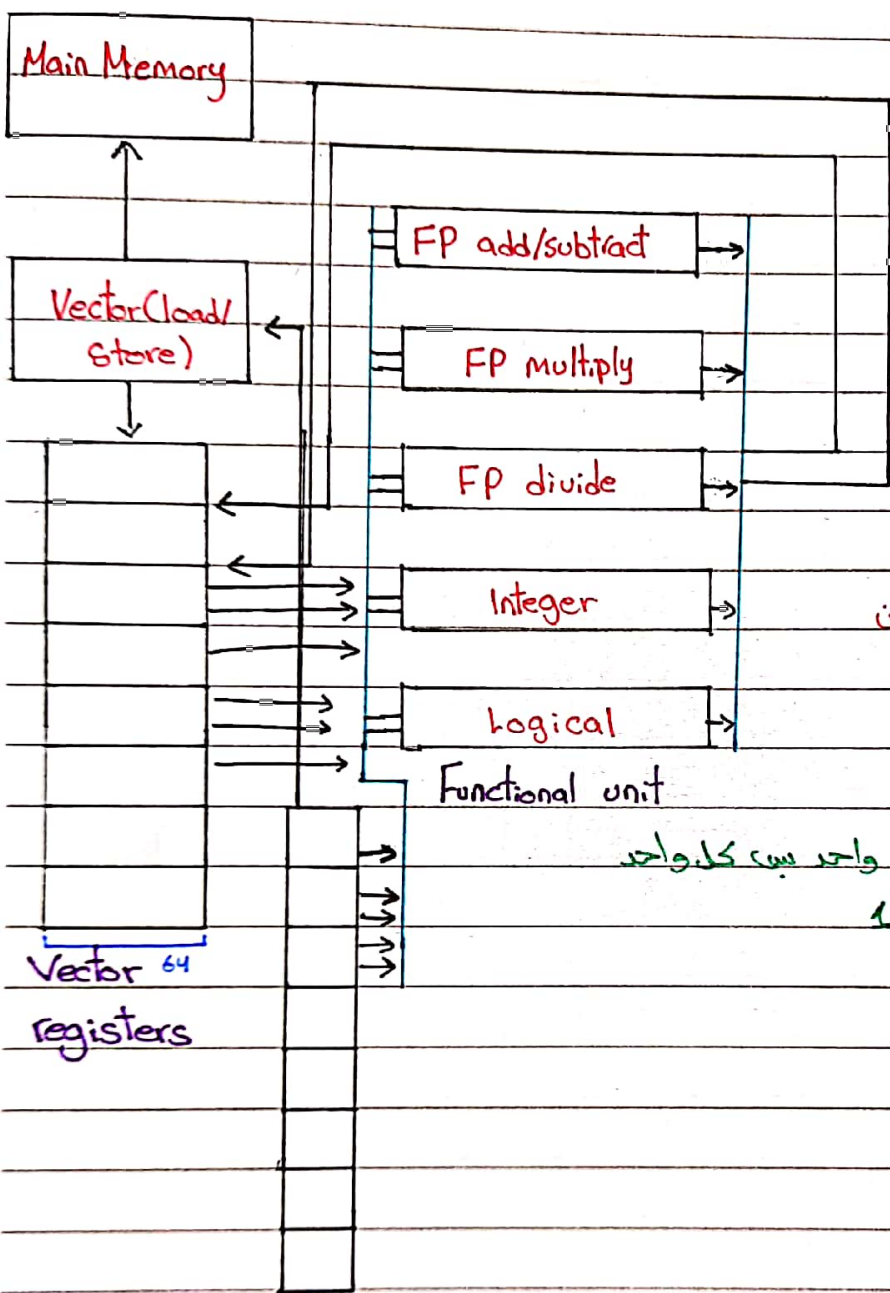 Main Memory
Vector(load/
Store)
FP add/subtract
FP multiply
FP divide
Integer
Logical
Functional unit
واحد بس كل واحد
1
Vector 64
registers